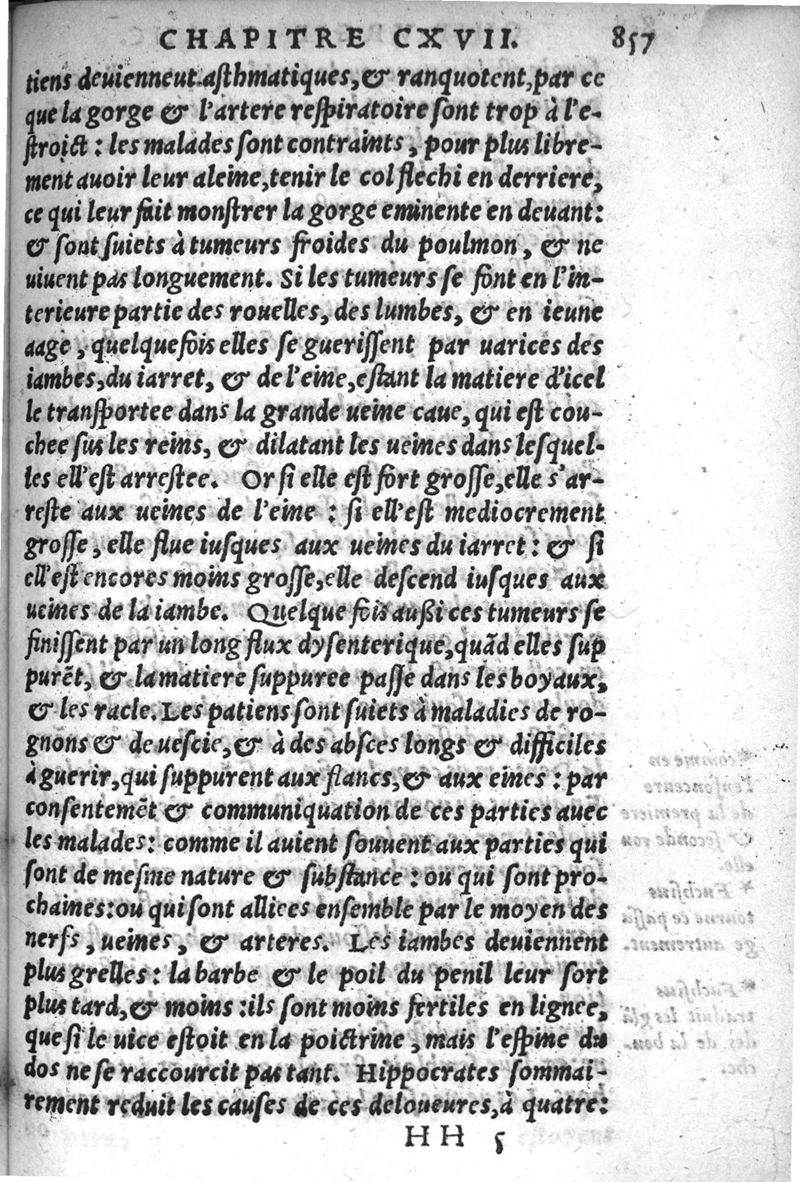 CHAPITRE CXVII. 857
tiens deuiennent asthmatiques, & ranquotent, par ce
que la gorge & l'artere respiratoire sont trop à l'e-
stroict : les malades sont contraints, pour plus libre-
ment auoir leur aleine, tenir le col flechi en derriere,
ce qui leur fait monstrer la gorge eminente en deuant:
& sont suiets à tumeurs froides du poulmon, & ne
uiuent pas longuement. Si les tumeurs se font en l'in-
terieure partie des rouelles, des lumbes, & en ieune
aage, quelquefois elles se guerissent par uarices des
iambes, du iarret, & de l'eine, estant la matiere d'icel
le transportee dans la grande ueine caue, qui est cou-
chee sus les reins, & dilatant les ueines dans lesquel-
les ell'est arrestee. Or si elle est fort grosse, elle s'ar-
reste aux ueines de l'eine : si ell'est mediocrement
grosse, elle flue iusques aux ueines du iarret : & si
ell'est encores moins grosse, elle descend iusques aux
ueines de la iambe. Quelque fois außi ces tumeurs se
finissent par un long flux dysenterique, quãd elles sup
purẽt, & la matiere suppuree passe dans les boyaux,
& les racle. Les patiens sont suiets à maladies de ro-
gnons & de uescie, & à des absces longs & difficiles
à guerir, qui suppurent aux flancs, & aux eines : par
consentemẽt & communiquation de ces parties auec
les malades: comme il auient souuent aux parties qui
sont de mesme nature & substance : ou qui sont pro-
chaines: ou qui sont allices ensemble par le moyen des
nerfs, ueines, & arteres. Les iambes deuiennent
plus grelles : la barbe & le poil du penil leur sort
plus tard, & moins : ils sont moins fertiles en lignee,
que si le uice estoit en la poictrine, mais l'espine du
dos ne se raccourcit pas tant. Hippocrates sommai-
rement reduit les causes de ces deloueures, à quatre:
HH 5